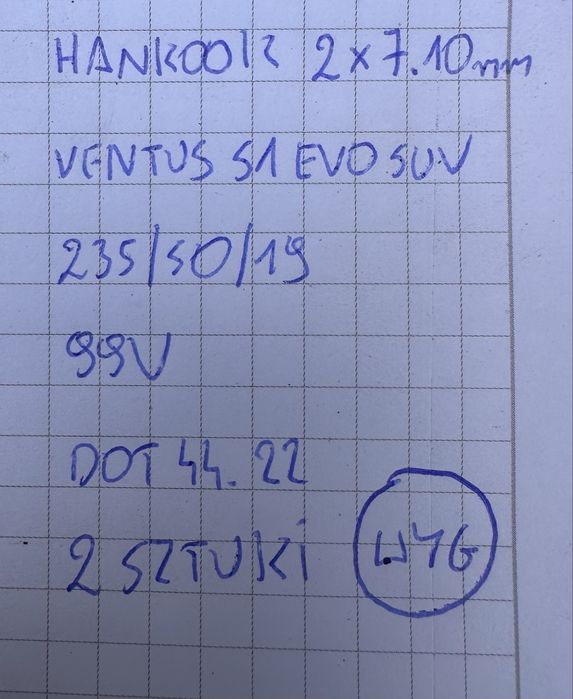 HANKOOK 2x7.10mm
VENTUS S1 EVO SUV
235/50/19
99V
DOT 44.22
2 SZTUKI
WYG